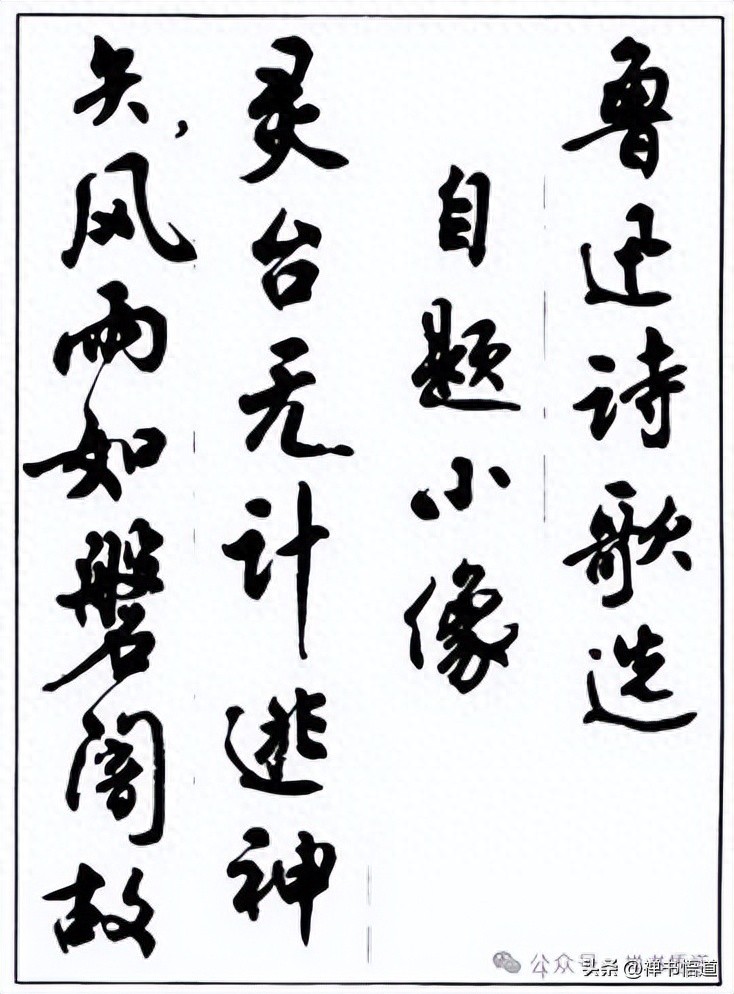 鲁迅诗歌选
自题小像
灵台无计逃神
矢,风雨如磐闇故
头条 @禅书悟道